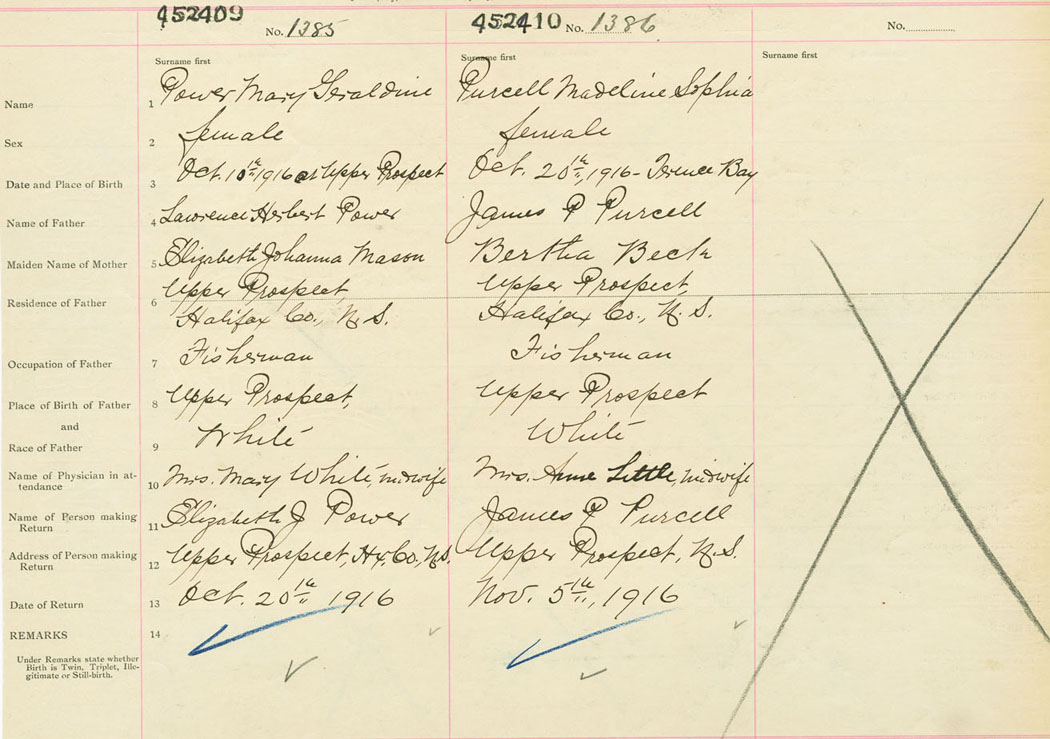 452409
No. 1385
452410
No. 1386
No.
Surname first
Surname first
Surname first
Name
1
Power Mary Geraldine
Purcell Madeline Sophia
Sex
2
female
female
Date and Place of Birth
3
Oct. 10th 1916 at Upper Prospect
Oct. 20th, 1916 - Terence Bay
Name of Father
4
Lawrence Herbert Power
James P Purcell
Maiden Name of Mother
5
Elizabeth Johanna Mason
Bertha Beck
Residence of Father
6
Upper Prospect,
Halifax Co., N. S.
Upper Prospect,
Halifax Co., N. S.
Occupation of Father
7
Fisherman
Fisherman
Place of Birth of Father
8
Upper Prospect,
Upper Prospect
and
Race of Father
9
White
White
Name of Physician in at-
tendance
10
Mrs. Mary White, midwife
Mrs. Anne Little, midwife
Name of Person making
Return
11
Elizabeth J Power
James P Purcell
Address of Person making
Return
12
Upper Prospect, Hx. Co. N.S.
Upper Prospect, N.S.
Date of Return
13
Oct. 20th 1916
Nov. 5th, 1916
REMARKS
14
Under Remarks state whether
Birth is Twin, Triplet, Ille-
gitimate or Still-birth.